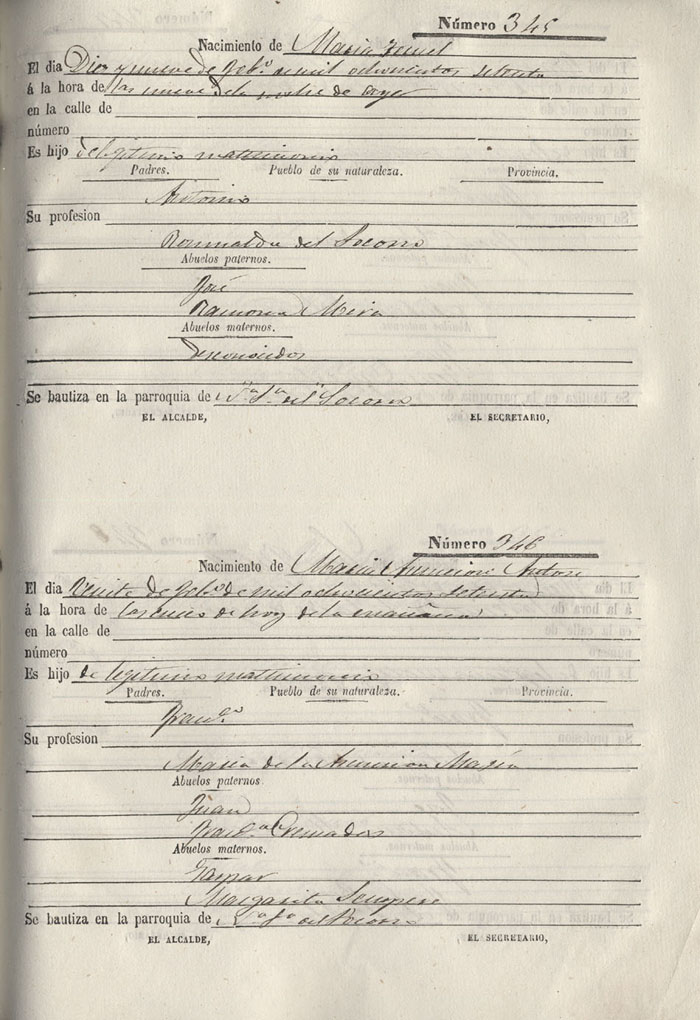 Número 345
Nacimiento de Maria
El dia Diez y nueve de 9bre. de mil ochocientos setenta
á la hora de las nueve de la noche de ayer
en la calle de
número
Es hijo de legitimo matrimonio
Padres. Pueblo de su naturaleza. Provincia.
Antonio
Su profesion
Romualda del Socorro
Abuelos paternos.
José
Ramona Mira
Abuelos maternos.
desconocidos
Se bautiza en la parroquia de del Socorro
EL ALCALDE, EL SECRETARIO,
Número 346
Nacimiento de Maria Asuncion Anton
El dia Veinte de de mil ochocientos setenta
á la hora de las de hoy de la mañana
en la calle de
número
Es hijo de legitimo matrimonio
Padres. Pueblo de su naturaleza. Provincia.
Franco.
Su profesion
Maria de la Asuncion
Abuelos paternos.
Juan
Franca. Cremades
Abuelos maternos.
Gaspar
Margarita Sempere
Se bautiza en la parroquia de del Socorro
EL ALCALDE, EL SECRETARIO,